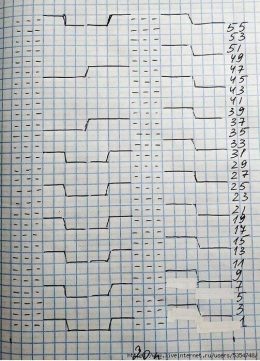 55
53
51
49
47
45
43
41
39
37
35
33
31
29
27
25
23
21
19
17
15
13
11
9
7
5
3
1
20